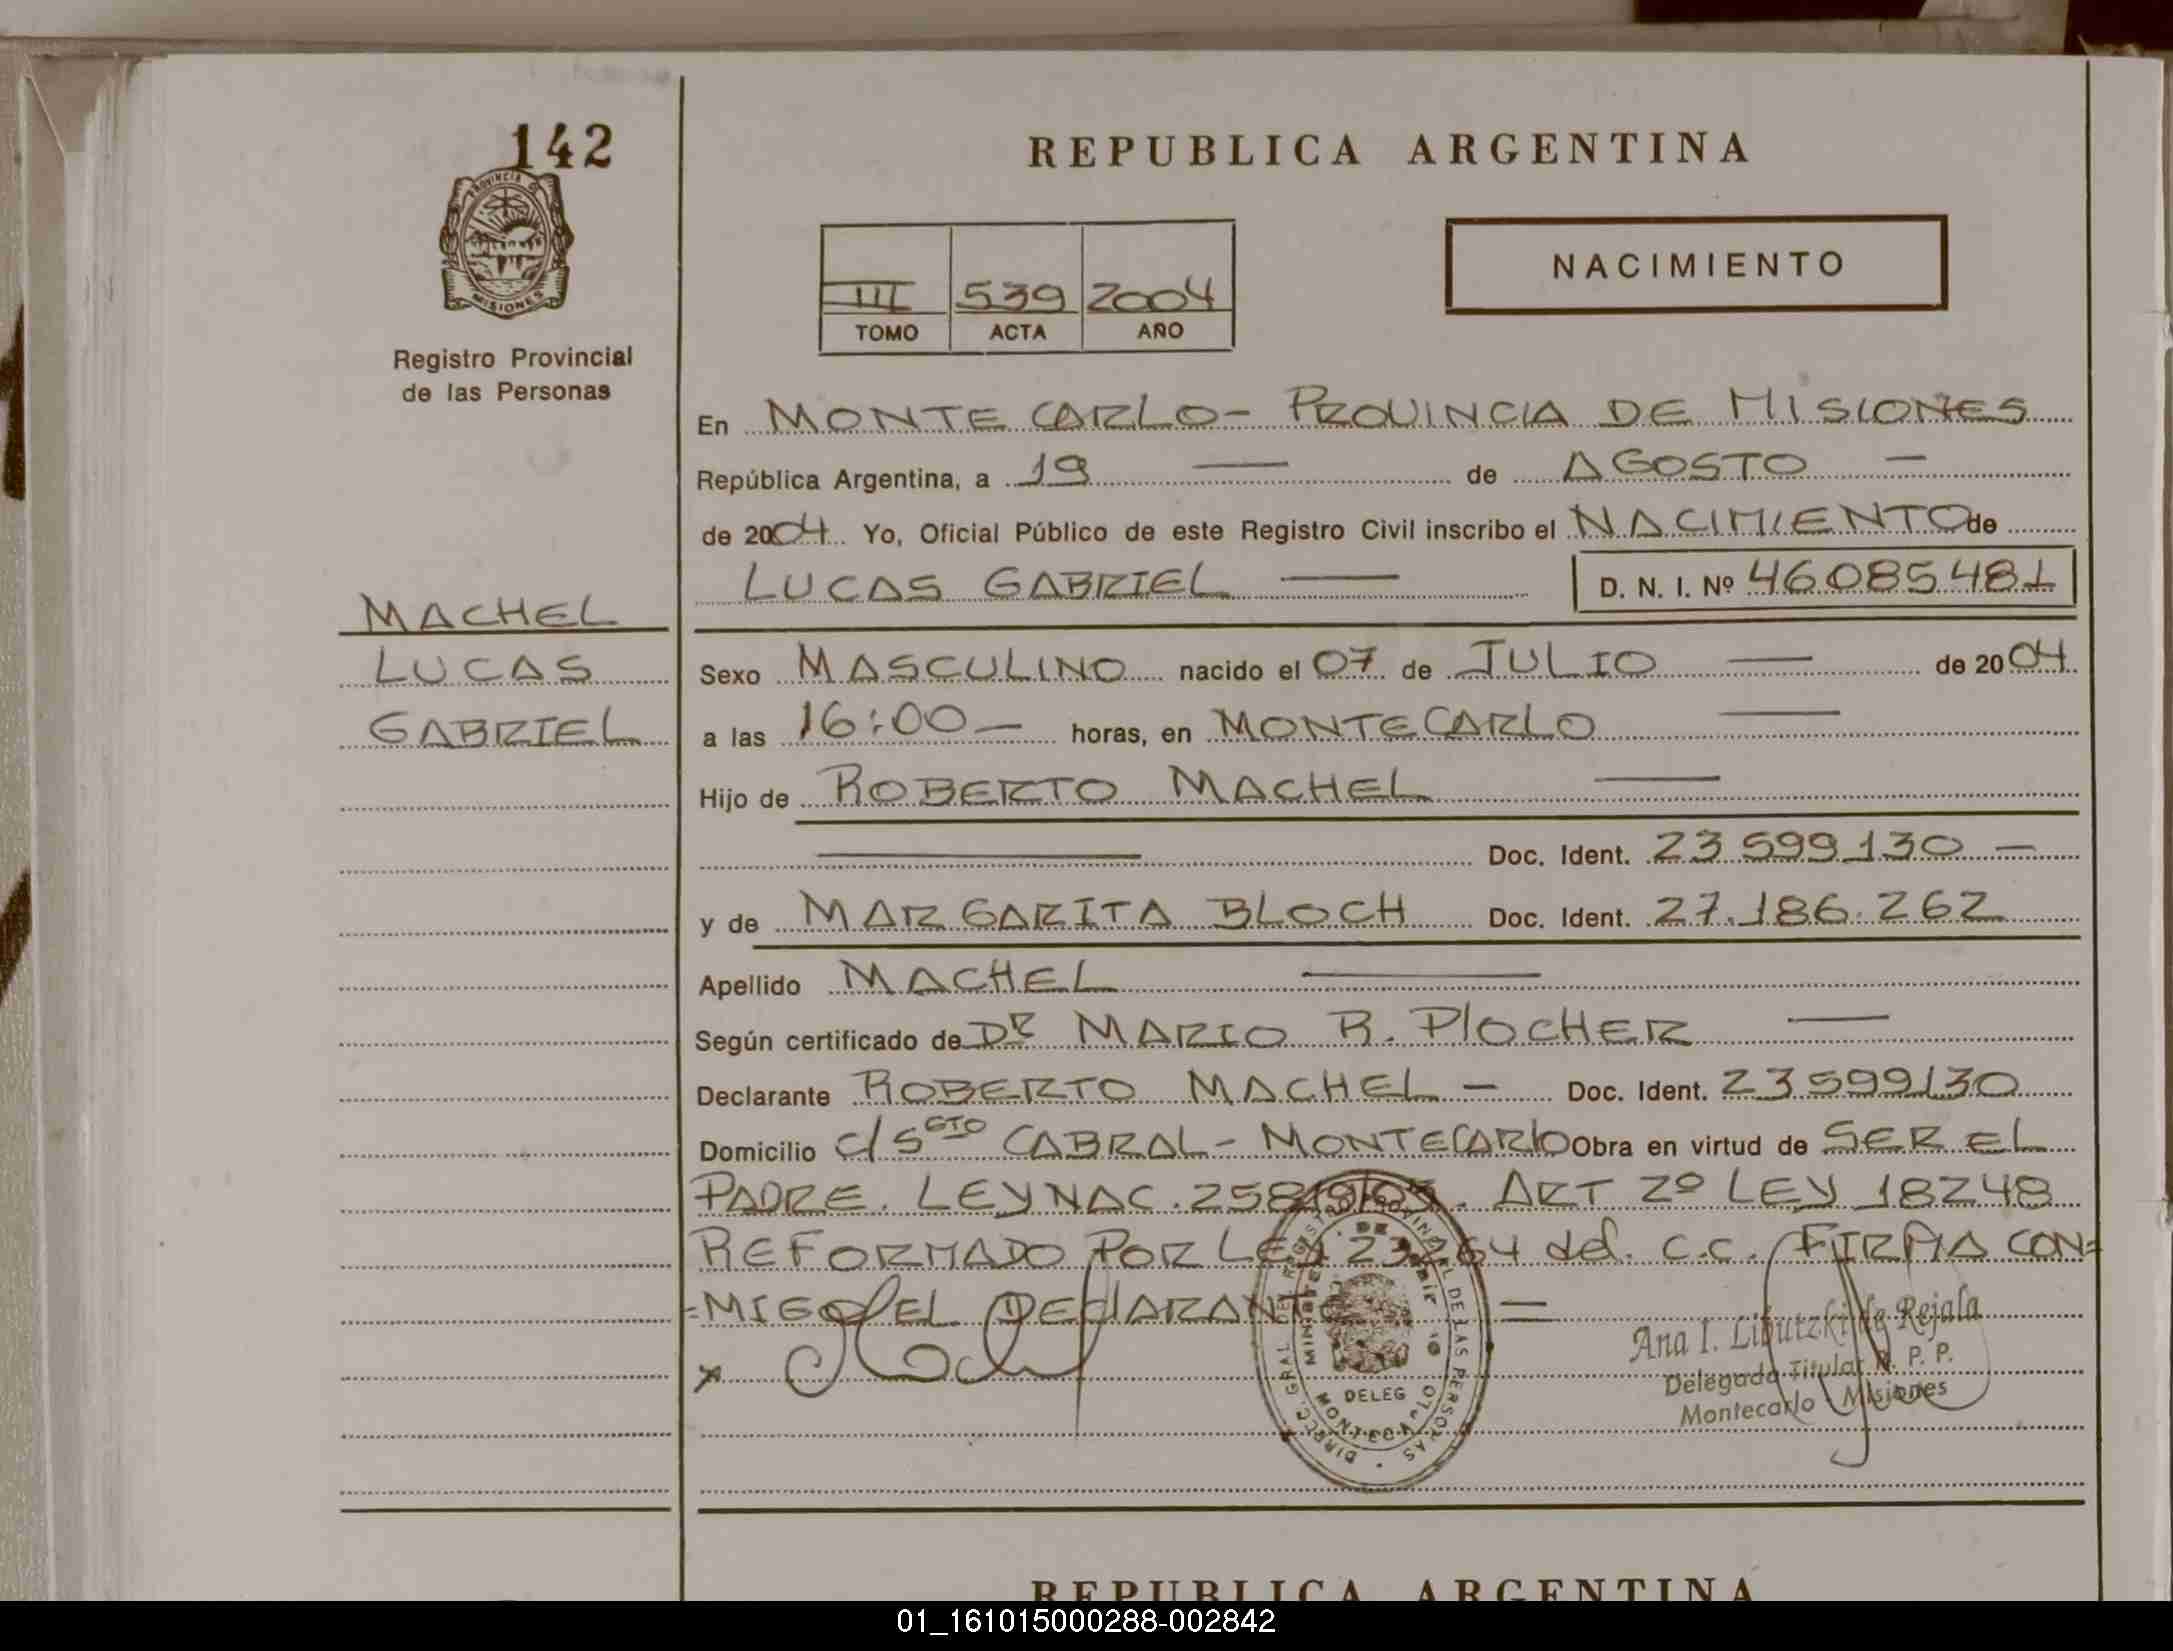 142
PROVINCIA DE
MISIONES
Registro Provincial
de las Personas
REPUBLICA ARGENTINA
III 539 2004
TOMO ACTA AÑO
NACIMIENTO
En MONTECARLO - PROVINCIA DE MISIONES
República Argentina, a 19 — de AGOSTO —
de 2004 Yo, Oficial Público de este Registro Civil inscribo el NACIMIENTO de
LUCAS GABRIEL — D. N. I. Nº 46.085.481
MACHEL
LUCAS
GABRIEL
Sexo MASCULINO nacido el 07 de JULIO — de 2004
a las 16:00 — horas, en MONTECARLO —
Hijo de ROBERTO MACHEL —
— Doc. Ident. 23 599 130 —
y de MARGARITA BLOCH Doc. Ident. 27.186.262
Apellido MACHEL —
Según certificado de Dr MARIO R. PLOCHER —
Declarante ROBERTO MACHEL — Doc. Ident. 23599130
Domicilio c/ SGTO CABRAL - MONTECARLO Obra en virtud de SER EL
PADRE. LEY NAC. ART 2º LEY 18248
REFORMADO POR LEY 23264 del C.C. FIRMA CON=
=MIGO EL DECLARANTE —
x
DELEG
MONTECARLO
Ana I. Libutzki de Rejala
Delegada Titular R. P. P.
Montecarlo - Misiones
REPUBLICA ARGENTINA
01_161015000288-002842